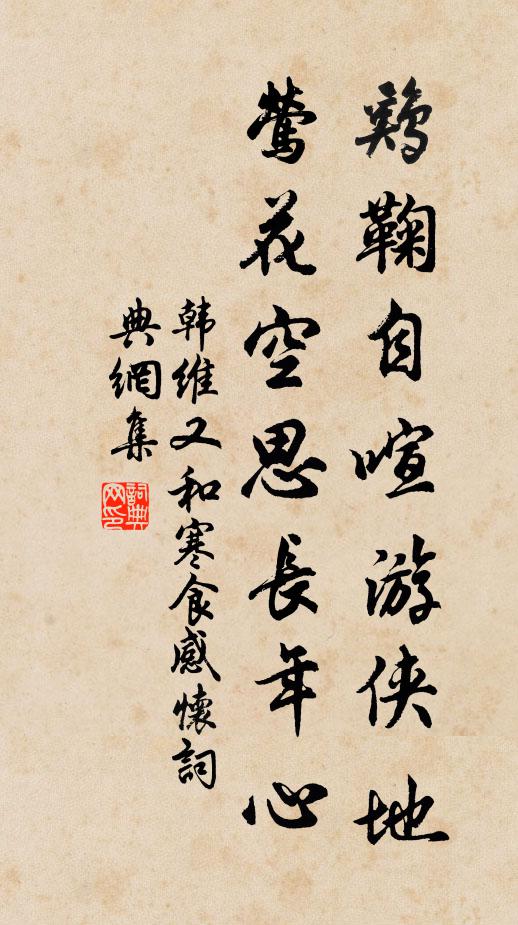 鷄鞠自喧游侠地
莺花空思長年心
韩维又和寒食感懷詞
典網集
詞典
网印